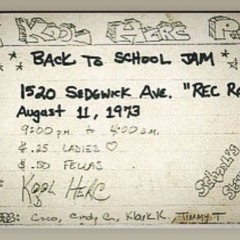 KOOL HERC
BACK TO SCHOOL JAM
1520 SEDGWICK AVE. "REC
August 11, 1973
9:00 p.m. to 4:00 a.m.
$.25 LADIES ♡
$.50 FELLAS
KOOL HERC
Coco, Cindy C., Klark K., TIMMY T